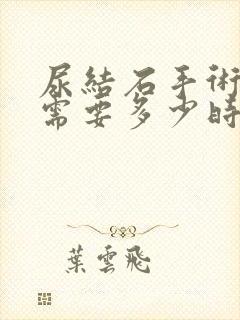 尿結石手術
需要多少時
葉雲飛